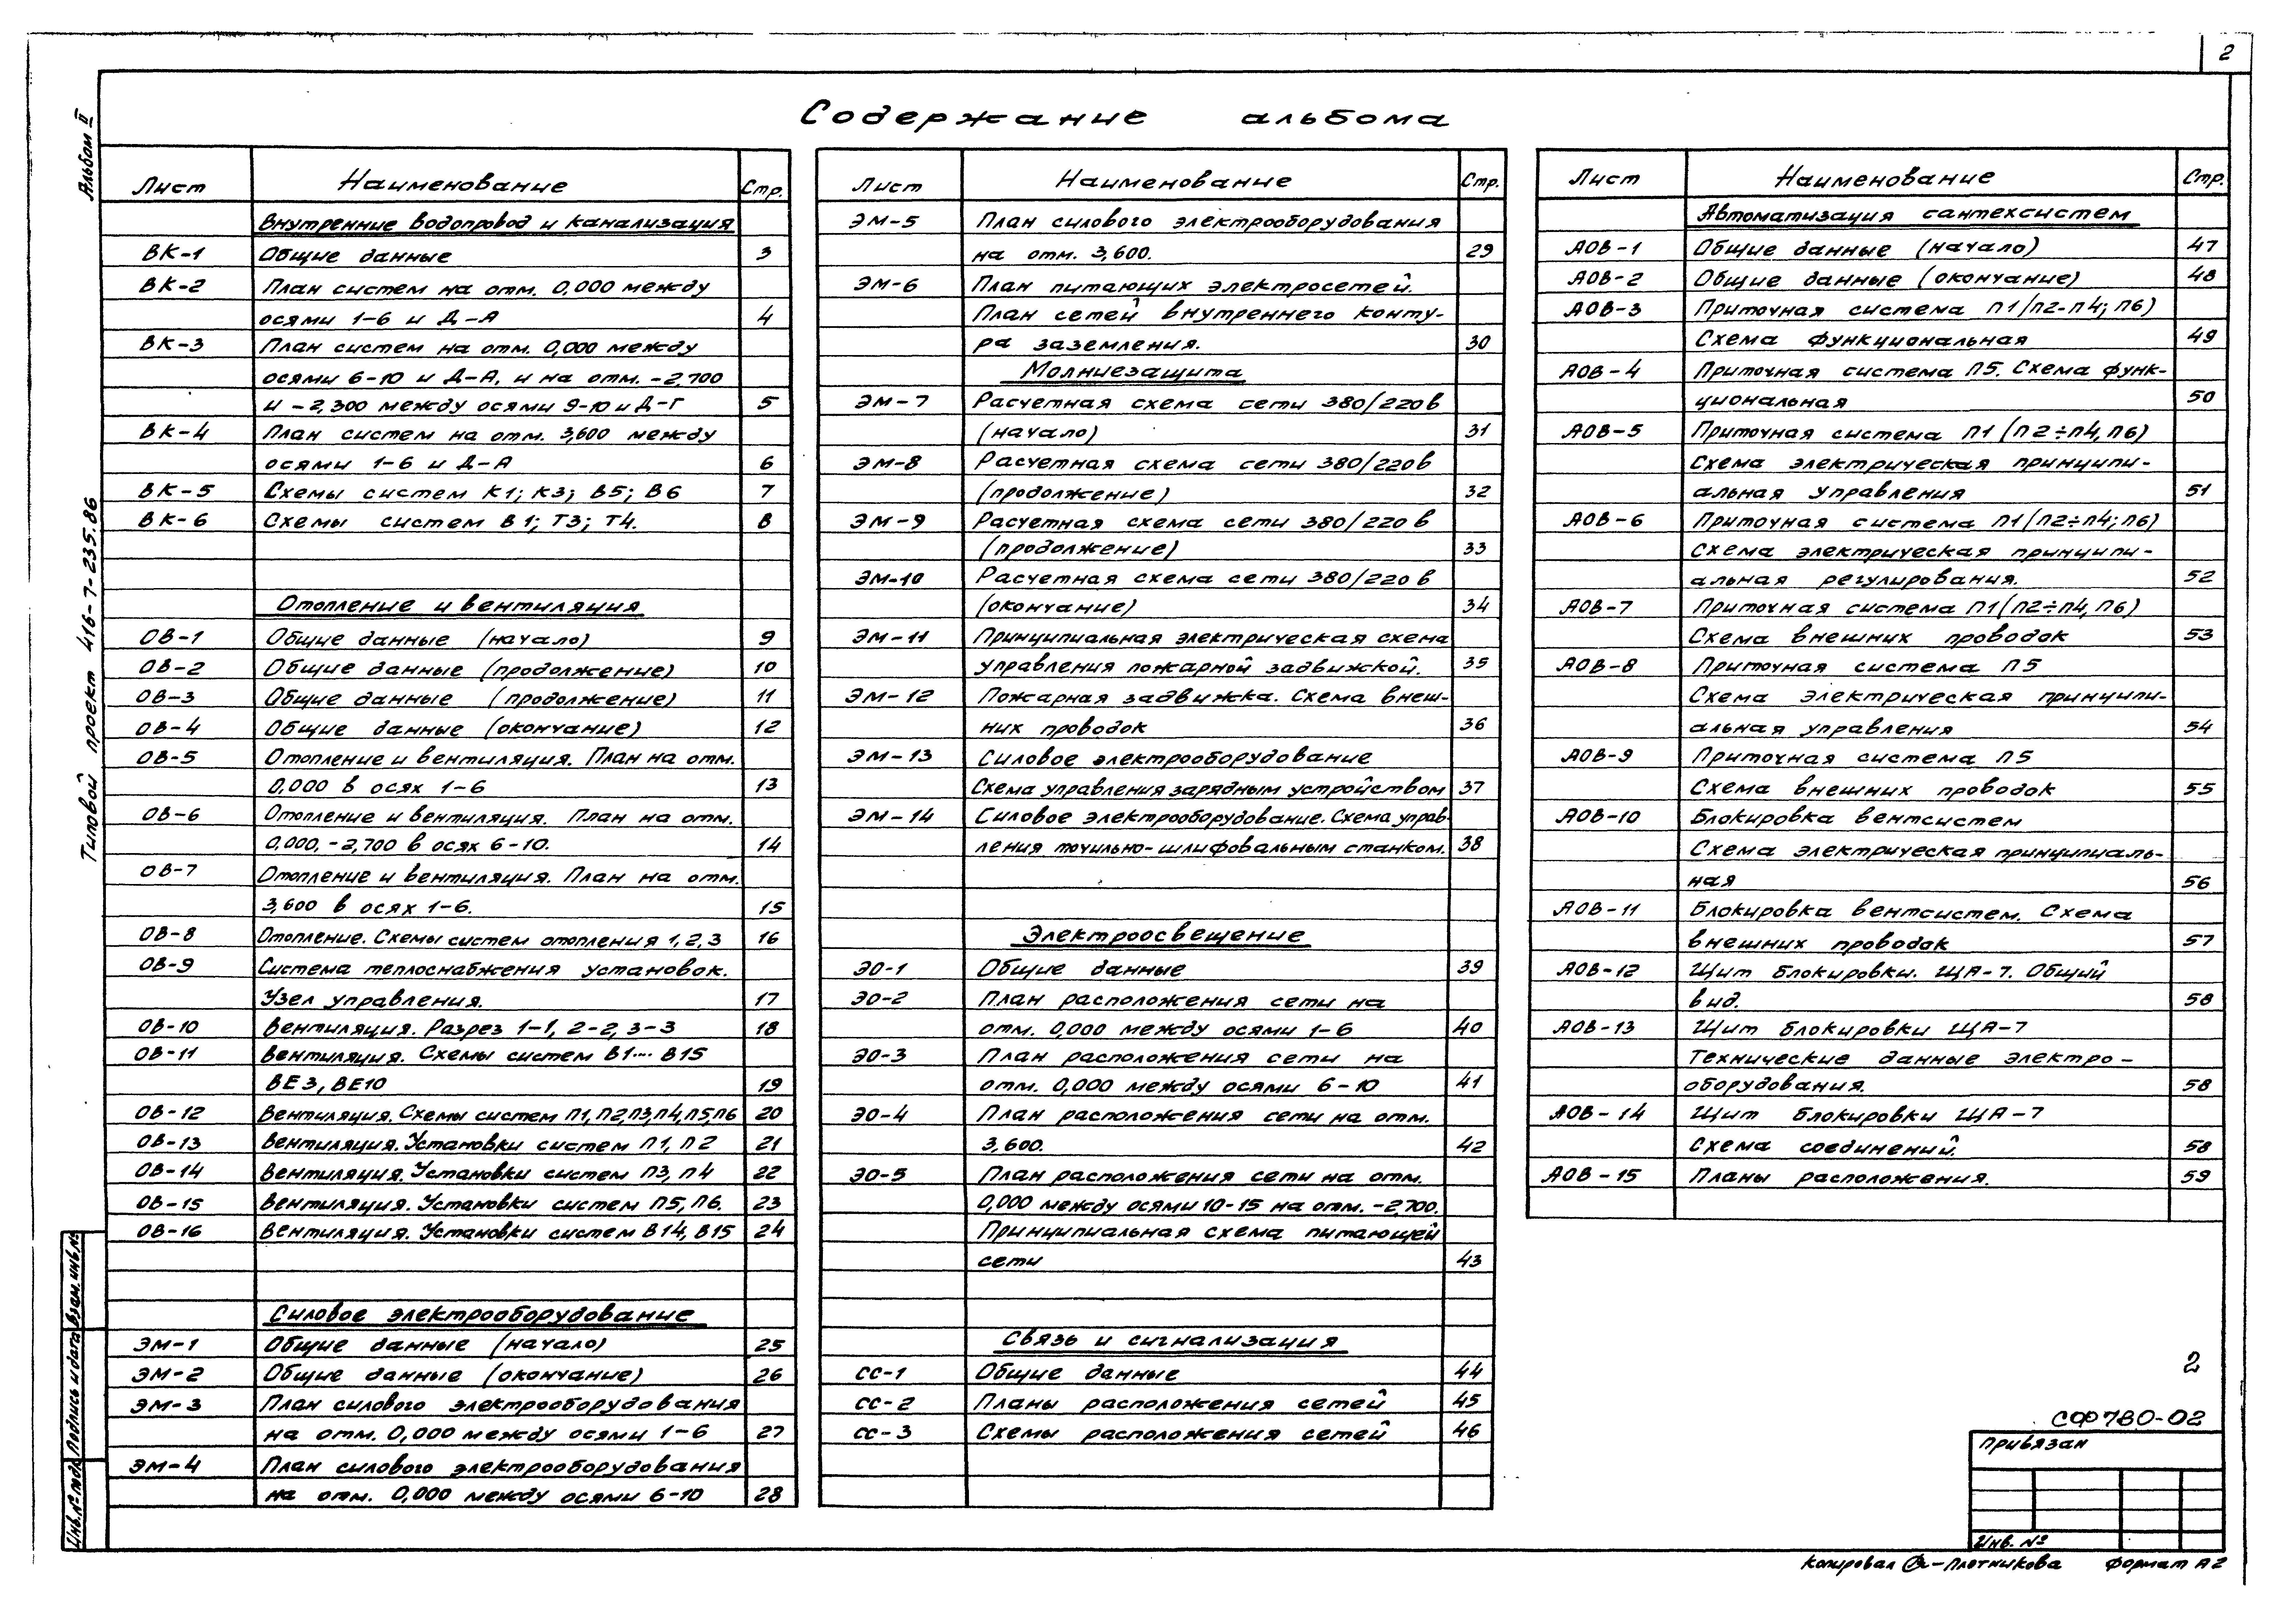 2
Содержание альбома
Альбом II
Типовой проект 416-7-235.86
Лист Наименование Стр.
Внутренние водопровод и канализация
ВК-1 Общие данные 3
ВК-2 План систем на отм. 0,000 между
осями 1-6 и Д-А 4
ВК-3 План систем на отм. 0,000 между
осями 6-10 и Д-А, и на отм. -2,700
и -2,300 между осями 9-10 и Д-Г 5
ВК-4 План систем на отм. 3,600 между
осями 1-6 и Д-А 6
ВК-5 Схемы систем К1; К3; В5; В6 7
ВК-6 Схемы систем В1; Т3; Т4. 8
Отопление и вентиляция
ОВ-1 Общие данные (начало) 9
ОВ-2 Общие данные (продолжение) 10
ОВ-3 Общие данные (продолжение) 11
ОВ-4 Общие данные (окончание) 12
ОВ-5 Отопление и вентиляция. План на отм.
0,000 в осях 1-6 13
ОВ-6 Отопление и вентиляция. План на отм.
0,000, -2,700 в осях 6-10. 14
ОВ-7 Отопление и вентиляция. План на отм.
3,600 в осях 1-6. 15
ОВ-8 Отопление. Схемы систем отопления 1,2,3 16
ОВ-9 Система теплоснабжения установок.
Узел управления. 17
ОВ-10 Вентиляция. Разрез 1-1, 2-2, 3-3 18
ОВ-11 Вентиляция. Схемы систем В1... В15
ВЕ3, ВЕ10 19
ОВ-12 Вентиляция. Схемы систем П1, П2, П3, П4, П5, П6 20
ОВ-13 Вентиляция. Установки систем П1, П2 21
ОВ-14 Вентиляция. Установки систем П3, П4 22
ОВ-15 Вентиляция. Установки систем П5, П6. 23
ОВ-16 Вентиляция. Установки систем В14, В15 24
Силовое электрооборудование
ЭМ-1 Общие данные (начало) 25
ЭМ-2 Общие данные (окончание) 26
ЭМ-3 План силового электрооборудования
на отм. 0,000 между осями 1-6 27
ЭМ-4 План силового электрооборудования
на отм. 0,000 между осями 6-10 28
Лист Наименование Стр.
ЭМ-5 План силового электрооборудования
на отм. 3,600. 29
ЭМ-6 План питающих электросетей.
План сетей внутреннего конту-
ра заземления. 30
Молниезащита
ЭМ-7 Расчетная схема сети 380/220в
(начало) 31
ЭМ-8 Расчетная схема сети 380/220в
(продолжение) 32
ЭМ-9 Расчетная схема сети 380/220в
(продолжение) 33
ЭМ-10 Расчетная схема сети 380/220в
(окончание) 34
ЭМ-11 Принципиальная электрическая схема
управления пожарной задвижкой. 35
ЭМ-12 Пожарная задвижка. Схема внеш-
них проводок 36
ЭМ-13 Силовое электрооборудование
Схема управления зарядным устройством 37
ЭМ-14 Силовое электрооборудование. Схема управ-
ления точильно-шлифовальным станком. 38
Электроосвещение
ЭО-1 Общие данные 39
ЭО-2 План расположения сети на
отм. 0,000 между осями 1-6 40
ЭО-3 План расположения сети на
отм. 0,000 между осями 6-10 41
ЭО-4 План расположения сети на отм.
3,600. 42
ЭО-5 План расположения сети на отм.
0,000 между осями 10-15 на отм. -2,700.
Принципиальная схема питающей
сети 43
Связь и сигнализация
СС-1 Общие данные 44
СС-2 Планы расположения сетей 45
СС-3 Схемы расположения сетей 46
Лист Наименование Стр.
Автоматизация сантехсистем
АОВ-1 Общие данные (начало) 47
АОВ-2 Общие данные (окончание) 48
АОВ-3 Приточная система П1 (П2-П4; П6)
Схема функциональная 49
АОВ-4 Приточная система П5. Схема функ-
циональная 50
АОВ-5 Приточная система П1 (П2÷П4, П6)
Схема электрическая принципи-
альная управления 51
АОВ-6 Приточная система П1 (П2÷П4; П6)
Схема электрическая принципи-
альная регулирования. 52
АОВ-7 Приточная система П1 (П2÷П4, П6)
Схема внешних проводок 53
АОВ-8 Приточная система П5
Схема электрическая принципи-
альная управления 54
АОВ-9 Приточная система П5
Схема внешних проводок 55
АОВ-10 Блокировка вентсистем
Схема электрическая принципиаль-
ная 56
АОВ-11 Блокировка вентсистем. Схема
внешних проводок 57
АОВ-12 Щит блокировки. ЩА-7. Общий
вид. 58
АОВ-13 Щит блокировки ЩА-7
Технические данные электро-
оборудования. 58
АОВ-14 Щит блокировки ЩА-7
Схема соединений. 58
АОВ-15 Планы расположения. 59
2
СФ780-02
Привязан
Инв. №
Инв.№ подл. Подпись и дата Взам. инв.№
Копировал - Плотникова Формат А2